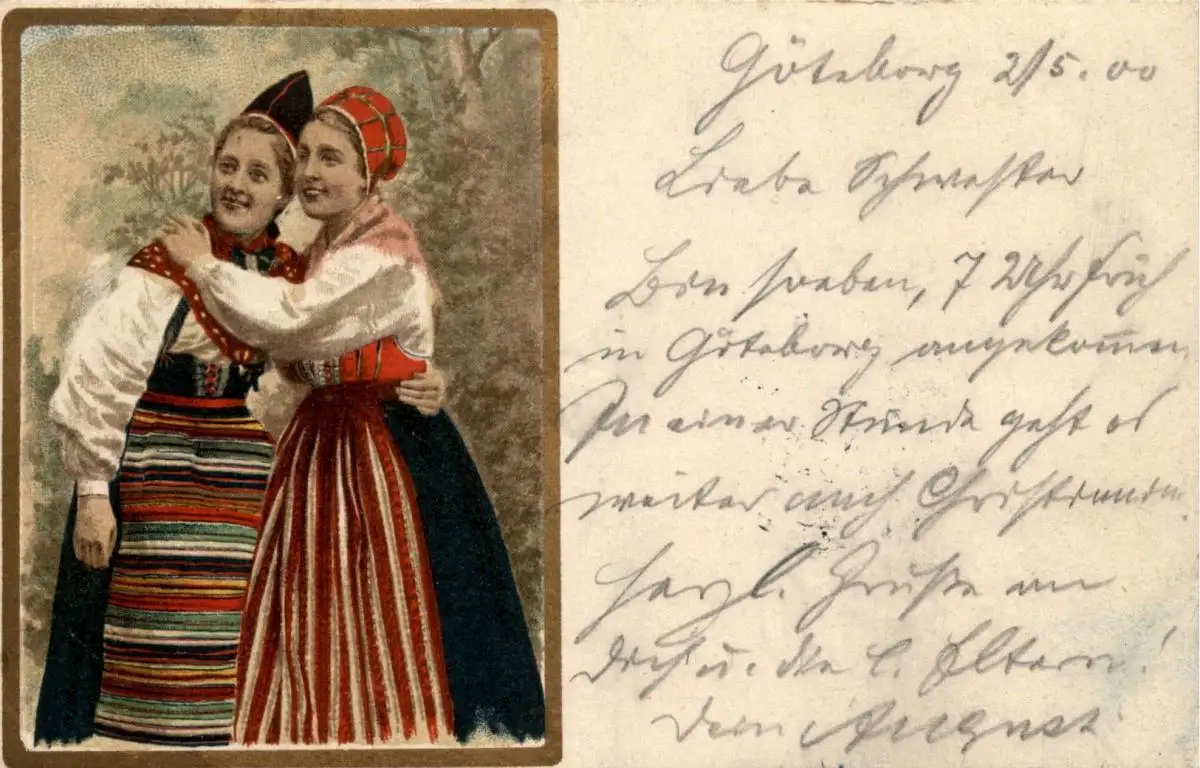 Göteborg 2/5.00
Liebe Schwester
Bin soeben, 7 Uhr früh
in Göteborg angekom̅en
In einer Stunde geht es
weiter nach Christiania
Herzl. Grüße an
dich u. die l. Eltern!
Dein August